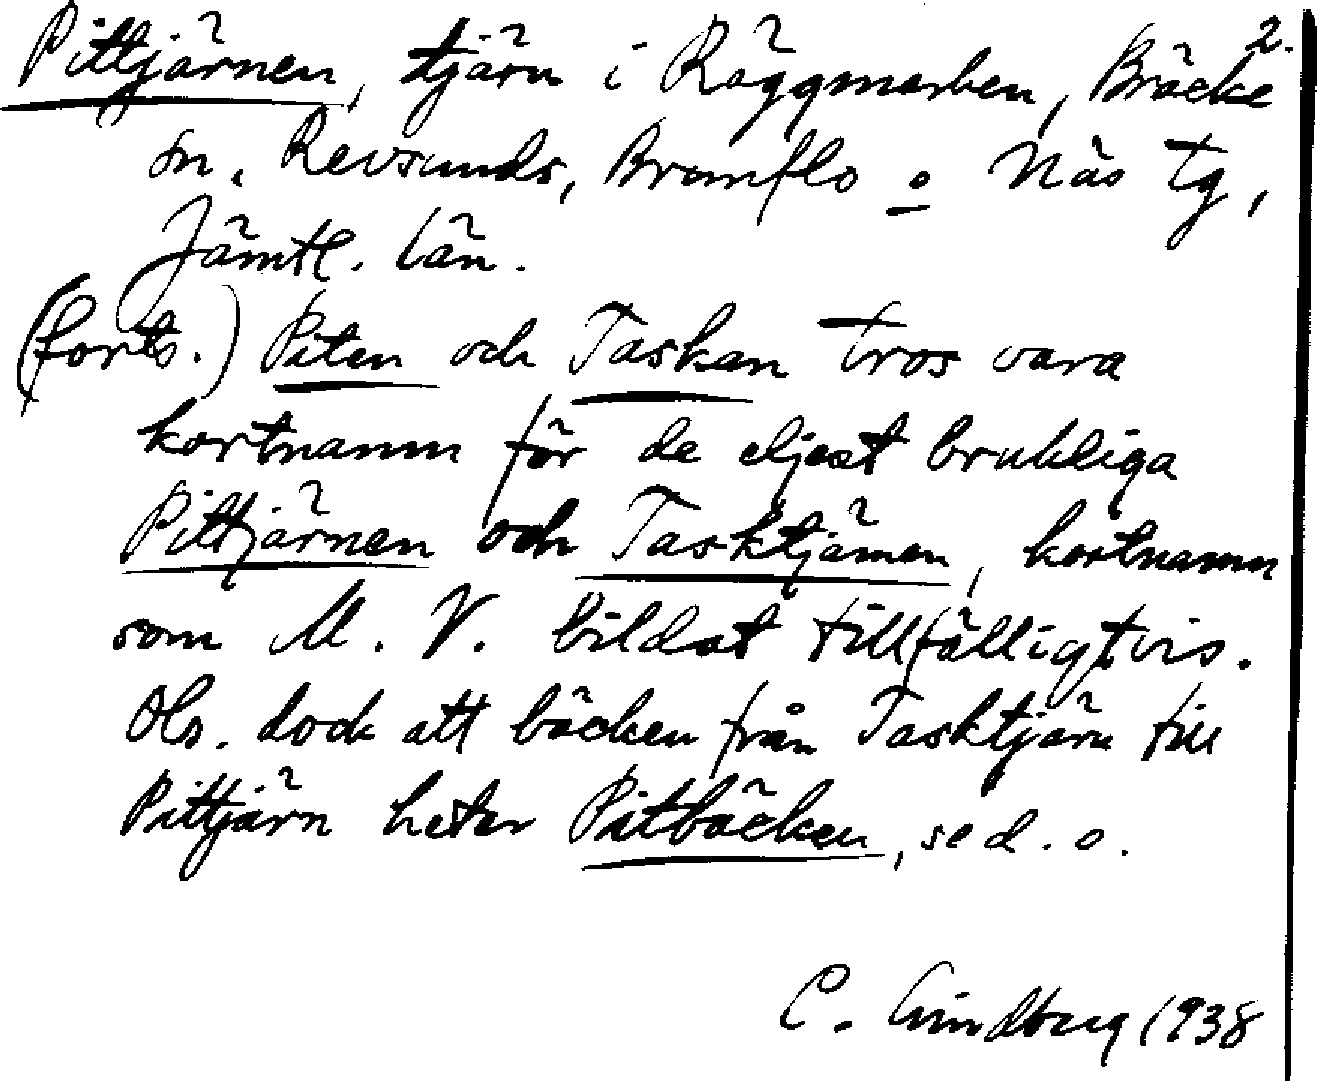 2.
Pittjärnen, tjärn i Räggmarken, Bräcke
sn, Revsunds, Brunflo o Näs tg,
Jämtl. län.
(forts.) Piten och Tasken tros vara
kortnamn för de eljest brukliga
Pittjärnen och Tasktjärnen, kortnamn
som M. V. bildat tillfälligtvis.
Obs. dock att bäcken från Tasktjärn till
Pittjärn heter Pitbäcken, se d. o.
C. Lindberg 1938